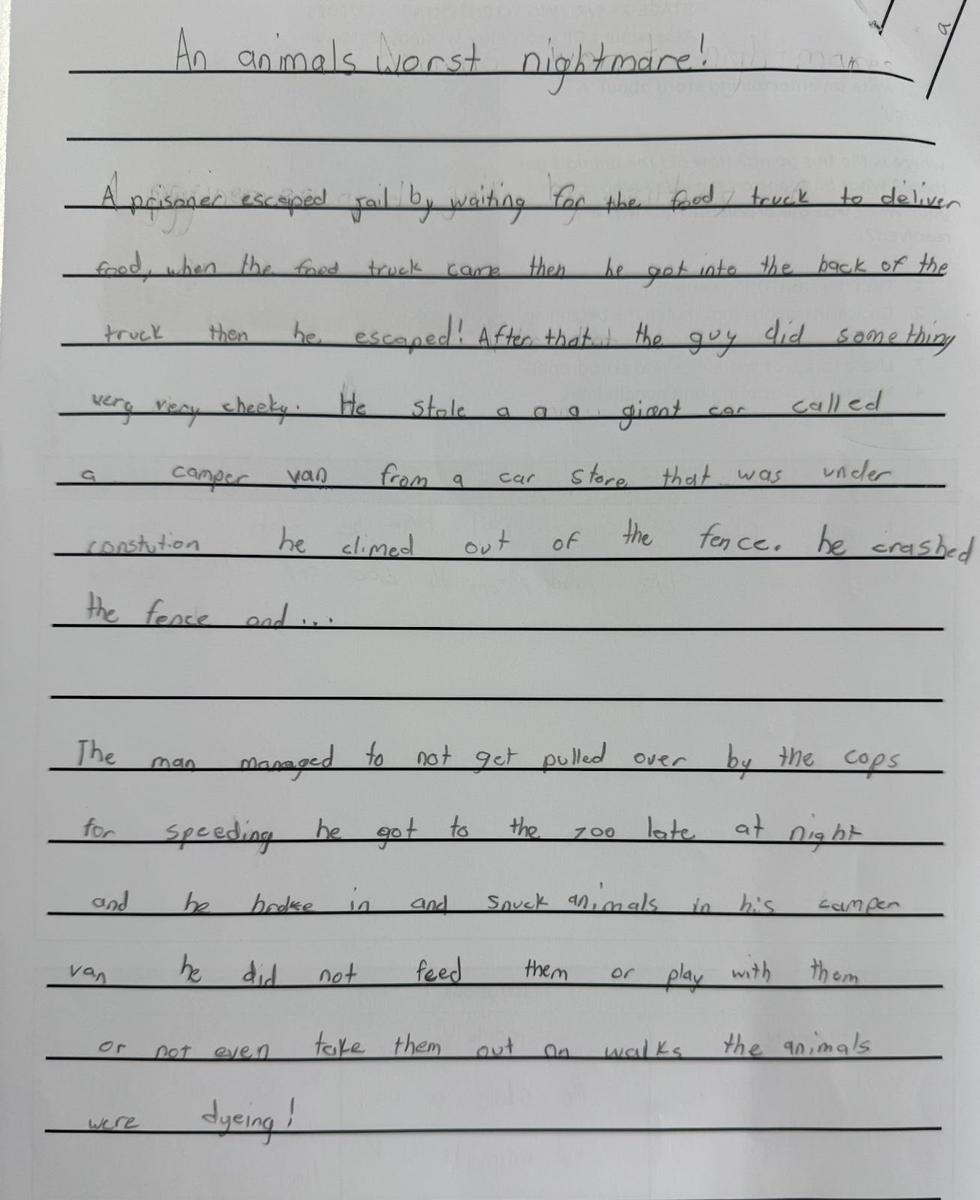 An animals Worst nightmare!
A prisoner escaped jail by waiting for the food truck to deliver
food, when the food truck came then he got into the back of the
truck then he escaped! After that the guy did something
very very cheeky. He stole a a a giant car called
a camper van from a car store that was under
constution he climed out of the fence. he crashed
the fence and...
The man managed to not get pulled over by the cops
for speeding he got to the zoo late at night
and he broke in and snuck animals in his camper
van he did not feed them or play with them
or not even take them out on walks the animals
were dyeing!